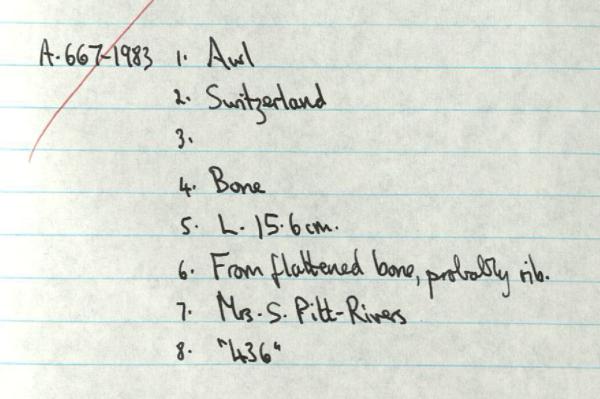 A.667-1983 1. Awl
2. Switzerland
3.
4. Bone
5. L. 15.6 cm.
6. From flattened bone, probably rib.
7. Mrs. S. Pitt-Rivers
8. "436"